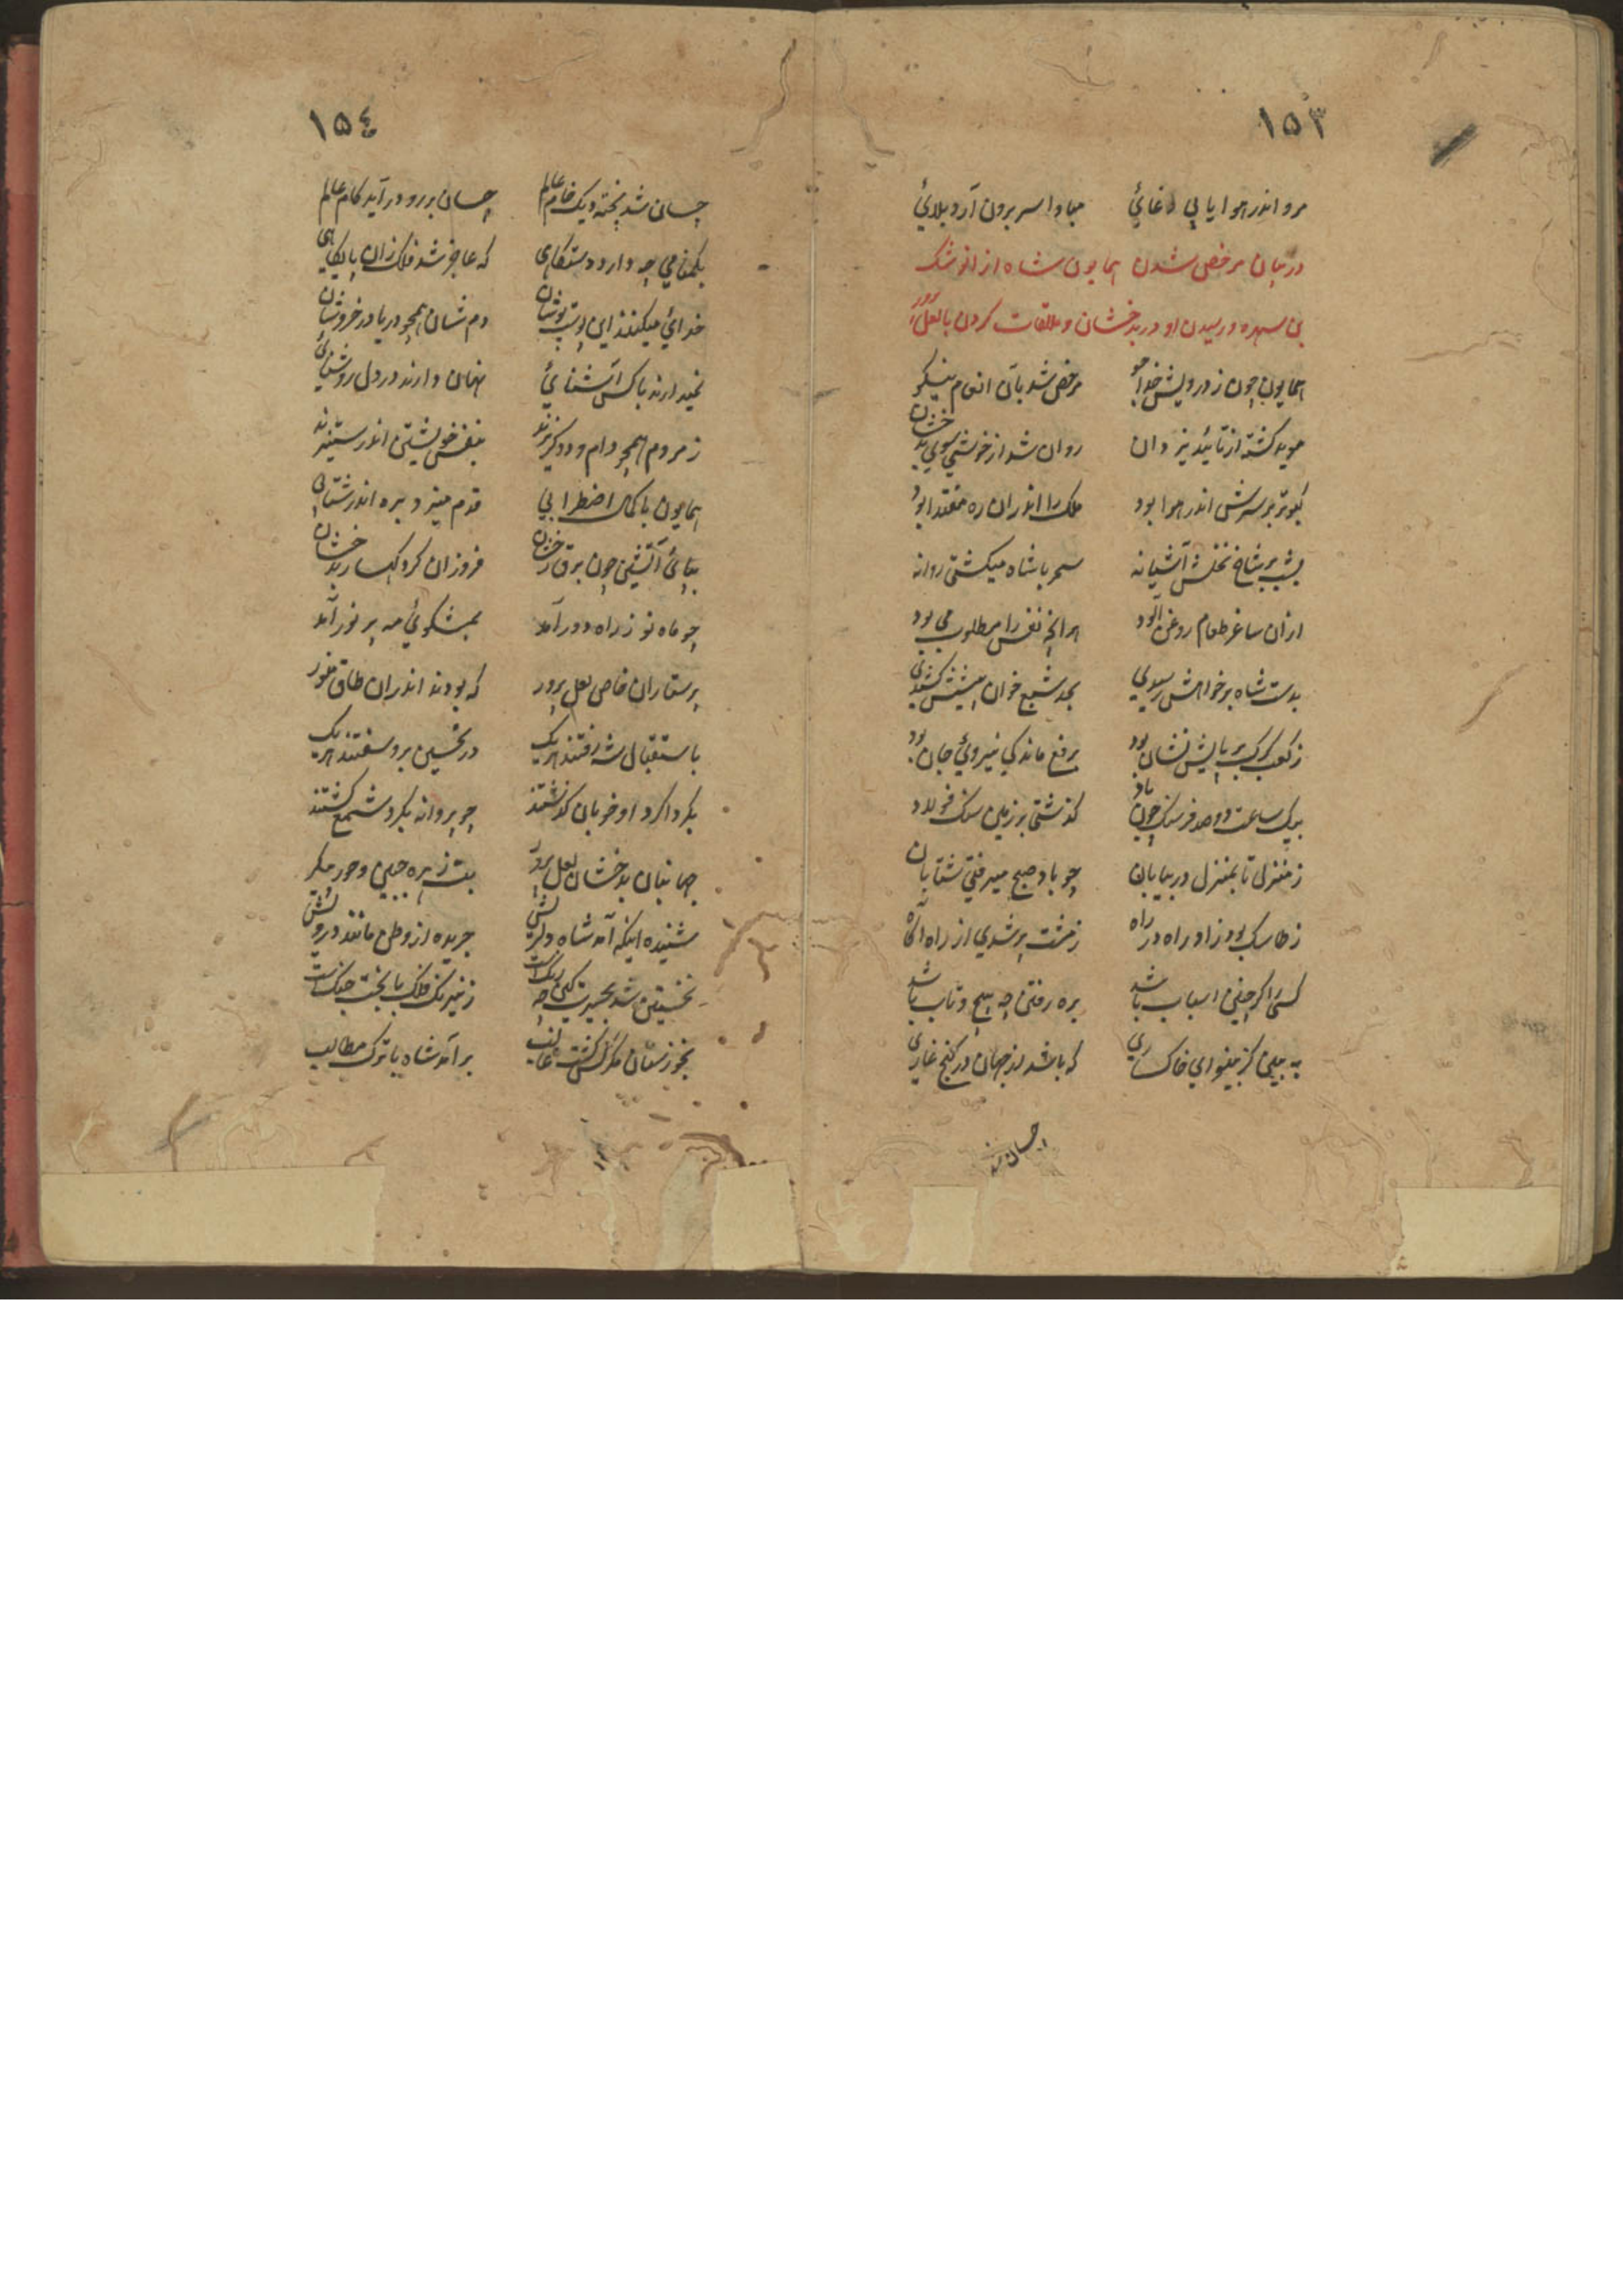 ١٥٣
مرو اندر هوا یا پی دغائی مبادا سر برون آرد بلائی
در بیان مرخص شدن همایون شاه از انوشک
بن سهره و رسیدن او در بدخشان و ملاقات کردن با لعل پرور
همایون چون ز درویش خداجو مرخص شد بآن انعام نیکو
موید گشته از تائید یزدان روان شد از خوشی سوی بدخشان
کبوتر بر سرش اندر هوا بود ملک را اندران ره مقتدا بود
بشب بر شاخ نخلش آشیانه سحر با شاه میگشتی روانه
ازان ساغر طعام روغن آلود هر آنچه نفس را مطلوب می بود
بدست شاه بر خواهش رسیدی بجد شبع خوان پیشش کشیدی
ز کعب گرگ بر پایش نشان بود برفع ماندگی نیروئی جان بود
بیک ساعت دو صد فرسنگ چون باد گذشتی بر زمین سنگ فولاد
ز منزل تا بمنزل در بیابان چو باد صبح میرفتی شتابان
ز طاسک بود زاد راه در راه زمشت پر شدی از راه آگاه
کسی را گر چنین اسباب باشد بره رفتن چه پیچ و تاب باشد
به بین کز بینوای خاکساری که باشد از جهان در کنج غاری
چسان شد
١٥٤
چسان شد پخته دیگ خام عالم چسان بر رو در آید کام عالم
بگمنامی چه دارد دستگاهی که عاجز شد فلک زان پایگاهی
خدائی میکنند این پوست پوشان دم شان همچو دریا در خروشان
نمیدارند با کس آشنائی نهان دارند در دل روشنائی
ز مردم همچو دام و دد گریزند بنفس خویشتن اندر ستیزند
همایون با کمال اضطرابی قدم میزد بره اندر شتابی
بپائ آتشین چون برق رخشان فروزان کرد کهسار بدخشان
چو ماه نو ز راه دور آمد بمشکوئ مه پر نور آمد
پرستاران خاص لعل پرور که بودند اندران طاق منور
باستقبال شه رفتند هر یک در تحسین برو سفتند هر یک
بگرداگرد او خوبان گذشتند چو پروانه بگرد شمع گشتند
جهانبان بدخشان لعل پرور بت زهره جبین و حور پیکر
شنیده اینکه آمد شاه دلریش جریده از وطن مانند درویش
نخستین شد بحیرت کین چه رنگست ز نیرنگ فلک با بخت جنگست
بخوزستان مگر کس گشت غالب بر آمد شاه با ترک مطالب